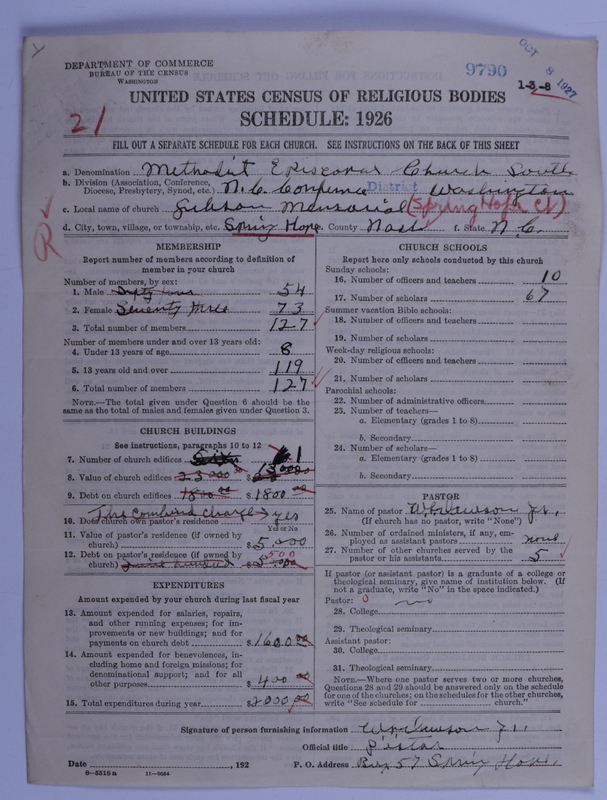 DEPARTMENT OF COMMERCE
BUREAU OF THE CENSUS
WASHINGTON
9790
OCT 8 1927
1-3-8
UNITED STATES CENSUS OF RELIGIOUS BODIES
SCHEDULE: 1926
21
FILL OUT A SEPARATE SCHEDULE FOR EACH CHURCH. SEE INSTRUCTIONS ON THE BACK OF THIS SHEET
a. Denomination Methodist Episcopal Church South
b. Division (Association, Conference, Diocese, Presbytery, Synod, etc.) N. C. Conference District Washington
c. Local name of church Memorial (Spring Hope Ct)
d. City, town, village, or township, etc. Spring Hope e. County Nash f. State N. C.
R
MEMBERSHIP
Report number of members according to definition of
member in your church
Number of members, by sex:
1. Male Fifty four 54
2. Female Seventy three 73
3. Total number of members 127
Number of members under and over 13 years old:
4. Under 13 years of age 8
5. 13 years old and over 119
6. Total number of members 127
NOTE.—The total given under Question 6 should be the
same as the total of males and females given under Question 3.
CHURCH BUILDINGS
See instructions, paragraphs 10 to 12
7. Number of church edifices Six 1
8. Value of church edifices 23000 $
9. Debt on church edifices 1800 $1800 00
The combined charge → yes
10. Does church own pastor's residence
Yes or No
11. Value of pastor's residence (if owned by
church) $5,000
12. Debt on pastor's residence (if owned by
church) hundred $ 500
EXPENDITURES
Amount expended by your church during last fiscal year
13. Amount expended for salaries, repairs,
and other running expenses; for im-
provements or new buildings; and for
payments on church debt $1600 00
14. Amount expended for benevolences, in-
cluding home and foreign missions; for
denominational support; and for all
other purposes $400 00
15. Total expenditures during year $2000 00
CHURCH SCHOOLS
Report here only schools conducted by this church
Sunday schools:
16. Number of officers and teachers 10
17. Number of scholars 67
Summer vacation Bible schools:
18. Number of officers and teachers
19. Number of scholars
Week-day religious schools:
20. Number of officers and teachers
21. Number of scholars
Parochial schools:
22. Number of administrative officers
23. Number of teachers—
a. Elementary (grades 1 to 8)
b. Secondary
24. Number of scholars—
a. Elementary (grades 1 to 8)
b. Secondary
PASTOR
25. Name of pastor Jr.
(If church has no pastor, write "None")
26. Number of ordained ministers, if any, em-
ployed as assistant pastors none
27. Number of other churches served by the
pastor or his assistants 5
If pastor (or assistant pastor) is a graduate of a college or
theological seminary, give name of institution below. (If
not a graduate, write "No" in the space indicated.)
Pastor: 0 no
28. College
29. Theological seminary
Assistant pastor:
30. College
31. Theological seminary
NOTE.—Where one pastor serves two or more churches,
Questions 28 and 29 should be answered only on the schedule
for one of the churches; on the schedules for the other churches
write "See schedule for church."
Signature of person furnishing information Jr.
Official title Pastor
Date , 192 P. O. Address Box 57 Spring Hope,
8-5518a 11-9054